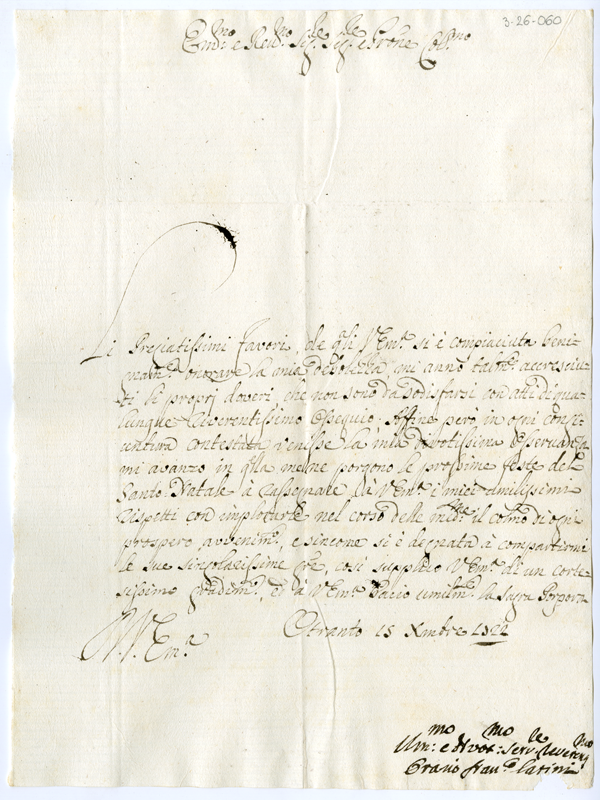 3-26-060
Em:mo e Rev:mo Sig:re Sig:re e Prone Col:mo
Li Pregiatissimi favori, de q͞li V Em:a si è compiaciuta beni-
gnam:e onorare la mia debolezza, mi anno talm:e accresciu-
ti li proprj doveri, che non sono da sodisfarsi con atti di qua-
lunque riverentissimo ossequio; Affine però in ogni cong-
iuntura contestata venisse la mia divotissima osservanza
mi avanzo in q͞lla me ne porgono le prossime feste del
Santo Natale à rassegnare à V Em:a i miei umilissimi
rispetti con implorarle nel corso delle med:me il colmo di ogni
prospero avvenim:o, e sincome si è degnata à compartirmi
le sue singolarissime gre, così supplico V Em:a di un corte-
sissimo gradim:o, ed à V Em:a bacio umilm:e la Sagra Porpora
Di V. Em:a
Otranto 15 Xmbre 1722
Um:mo e Divot:mo Serv:re
Orazio Fran:co Latini